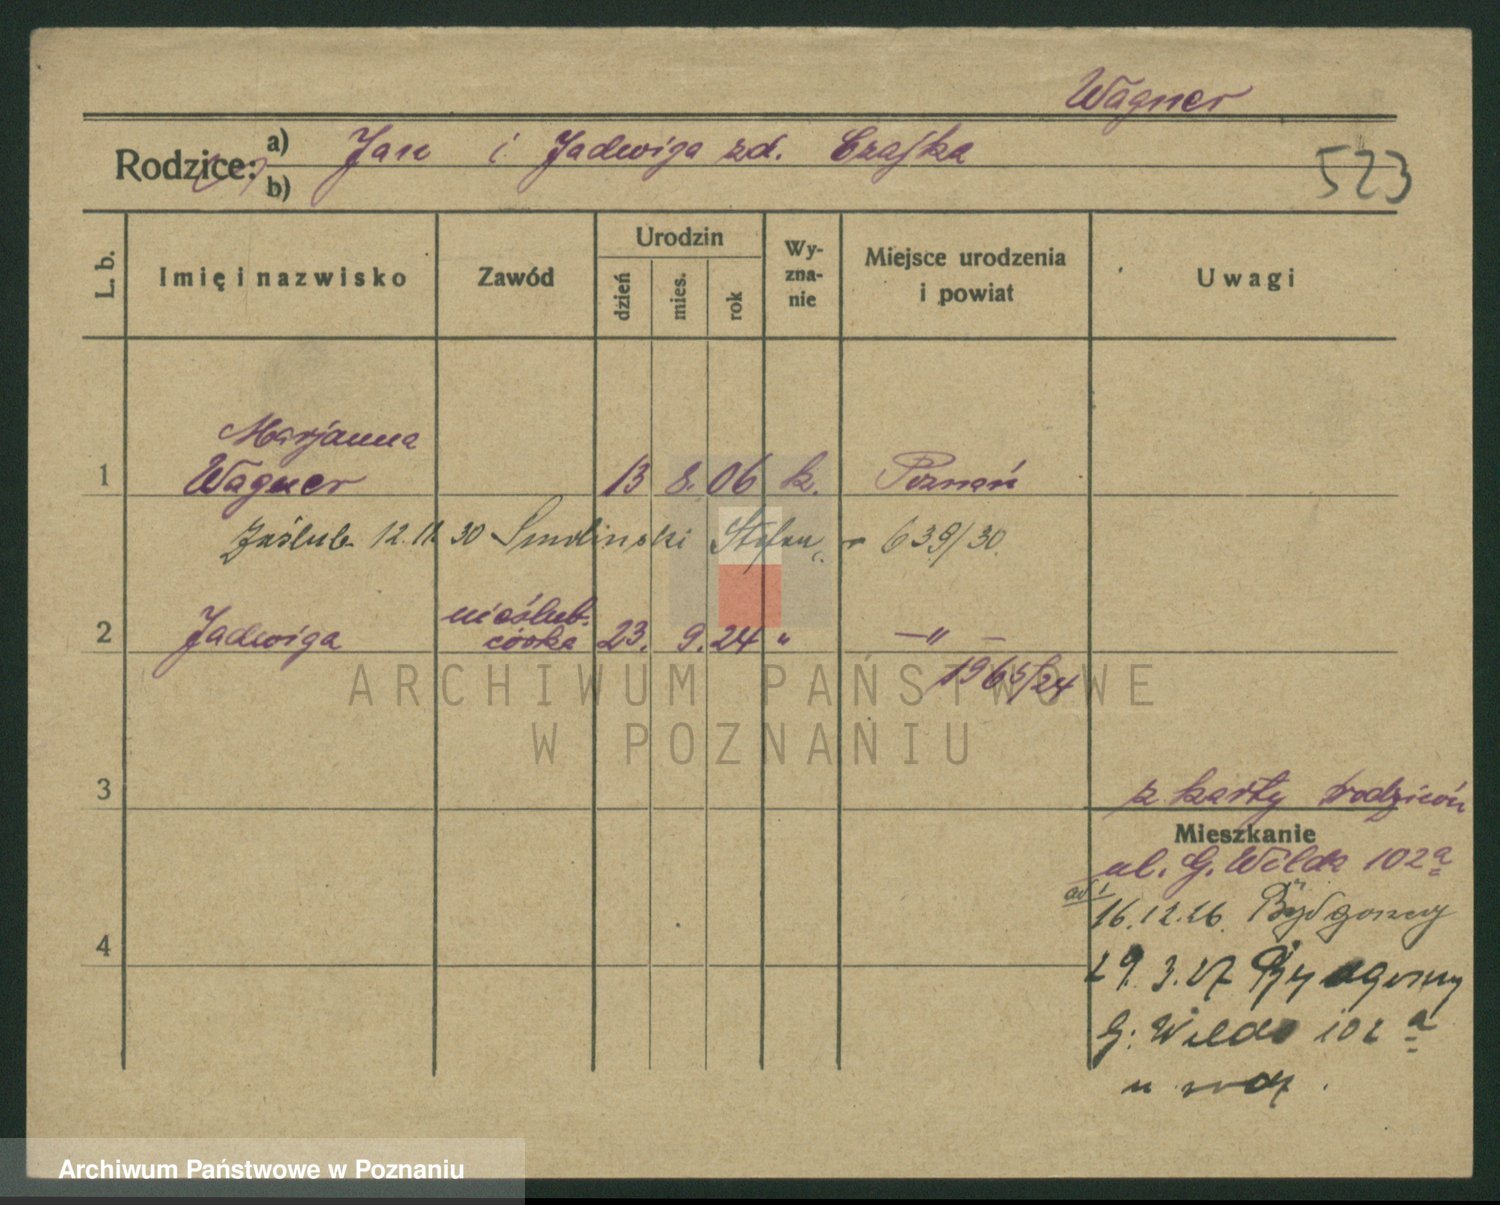 Wagner
Rodzice: a) Jan i Jadwiga zd. Czajka
b)
523
L. b. Imię i nazwisko Zawód Urodzin dzień mies. rok Wy-zna-nie Miejsce urodzenia i powiat Uwagi
Marjanna
1 Wagner 13 8. 06 k. Poznań
Zaślub. 12.11.30 Smoliński Stefan 639/30.
nieślub.
2 Jadwiga córka 23. 9. 24 " — " —
1965/24
ARCHIWUM PAŃSTWOWE
W POZNANIU
3 z karty rodziców
Mieszkanie
ul. G. Wilda 102a
ad 1
16.12.26. Bydgoszcz
4
29.3.27 Bydgoszcz
G. Wilda 102a
u rodz.
Archiwum Państwowe w Poznaniu